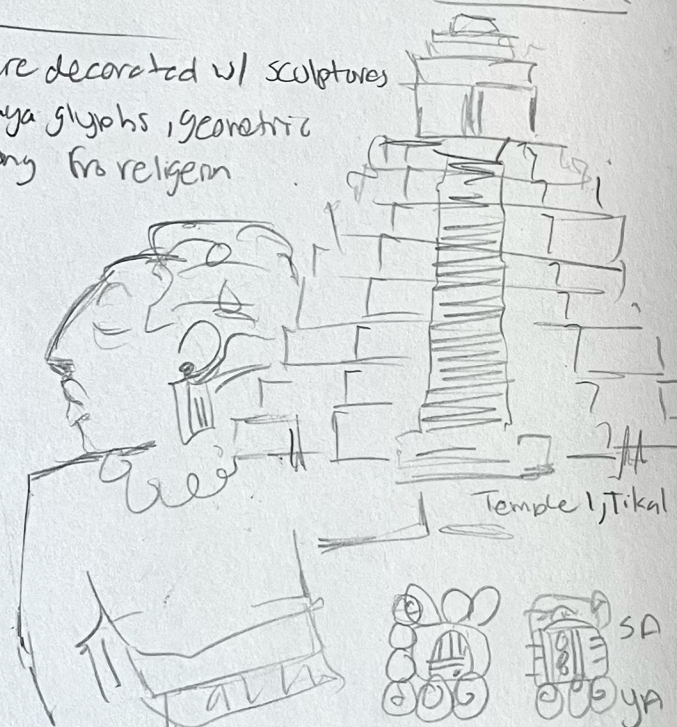 re decorated w/ sculptures
ya glyphs, geometric
ng fro religeon
Temple 1, Tikal
SA
YA